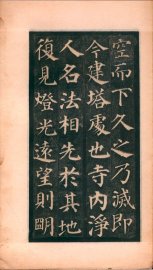 空而下久之乃滅即
今建塔處也寺內淨
人名法相先於其地
復見燈光遠望則眀